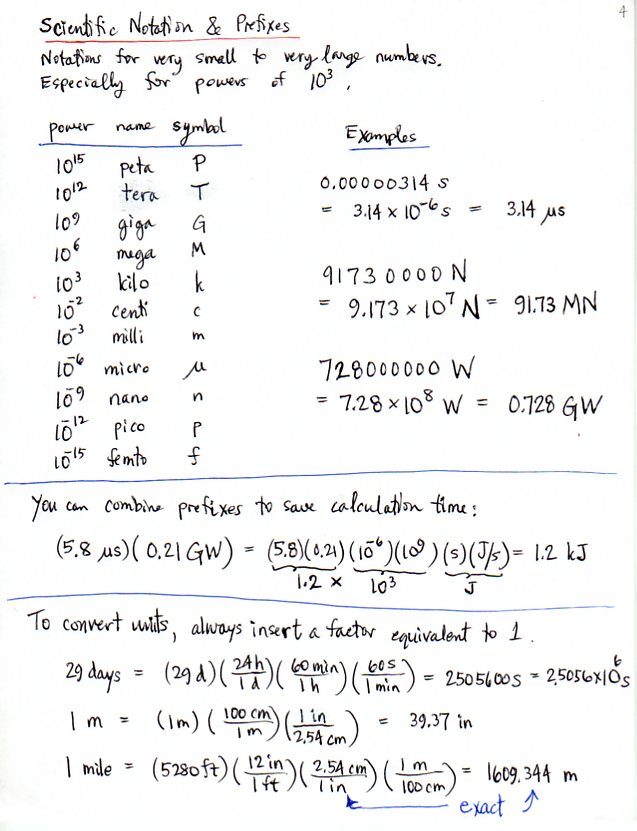 4
Scientific Notation & Prefixes
Notations for very small to very large numbers.
Especially for powers of 10³.
power name symbol
10¹⁵ peta P
10¹² tera T
10⁹ giga G
10⁶ mega M
10³ kilo k
10⁻² centi c
10⁻³ milli m
10⁻⁶ micro μ
10⁻⁹ nano n
10⁻¹² pico p
10⁻¹⁵ femto f
Examples
0.00000314 s
= 3.14 × 10⁻⁶ s = 3.14 μs
91730000 N
= 9.173 × 10⁷ N = 91.73 MN
728000000 W
= 7.28 × 10⁸ W = 0.728 GW
You can combine prefixes to save calculation time:
(5.8 μs)(0.21 GW) = (5.8)(0.21)(10⁻⁶)(10⁹)(s)(J/s) = 1.2 kJ
1.2 × 10³ J
To convert units, always insert a factor equivalent to 1.
29 days = (29 d)(24h/1 d)(60 min/1 h)(60 s/1 min) = 2505600 s = 2.5056×10⁶ s
1 m = (1m)(100 cm/1 m)(1 in/2.54 cm) = 39.37 in
1 mile = (5280 ft)(12 in/1 ft)(2.54 cm/1 in)(1 m/100 cm) = 1609.344 m
exact